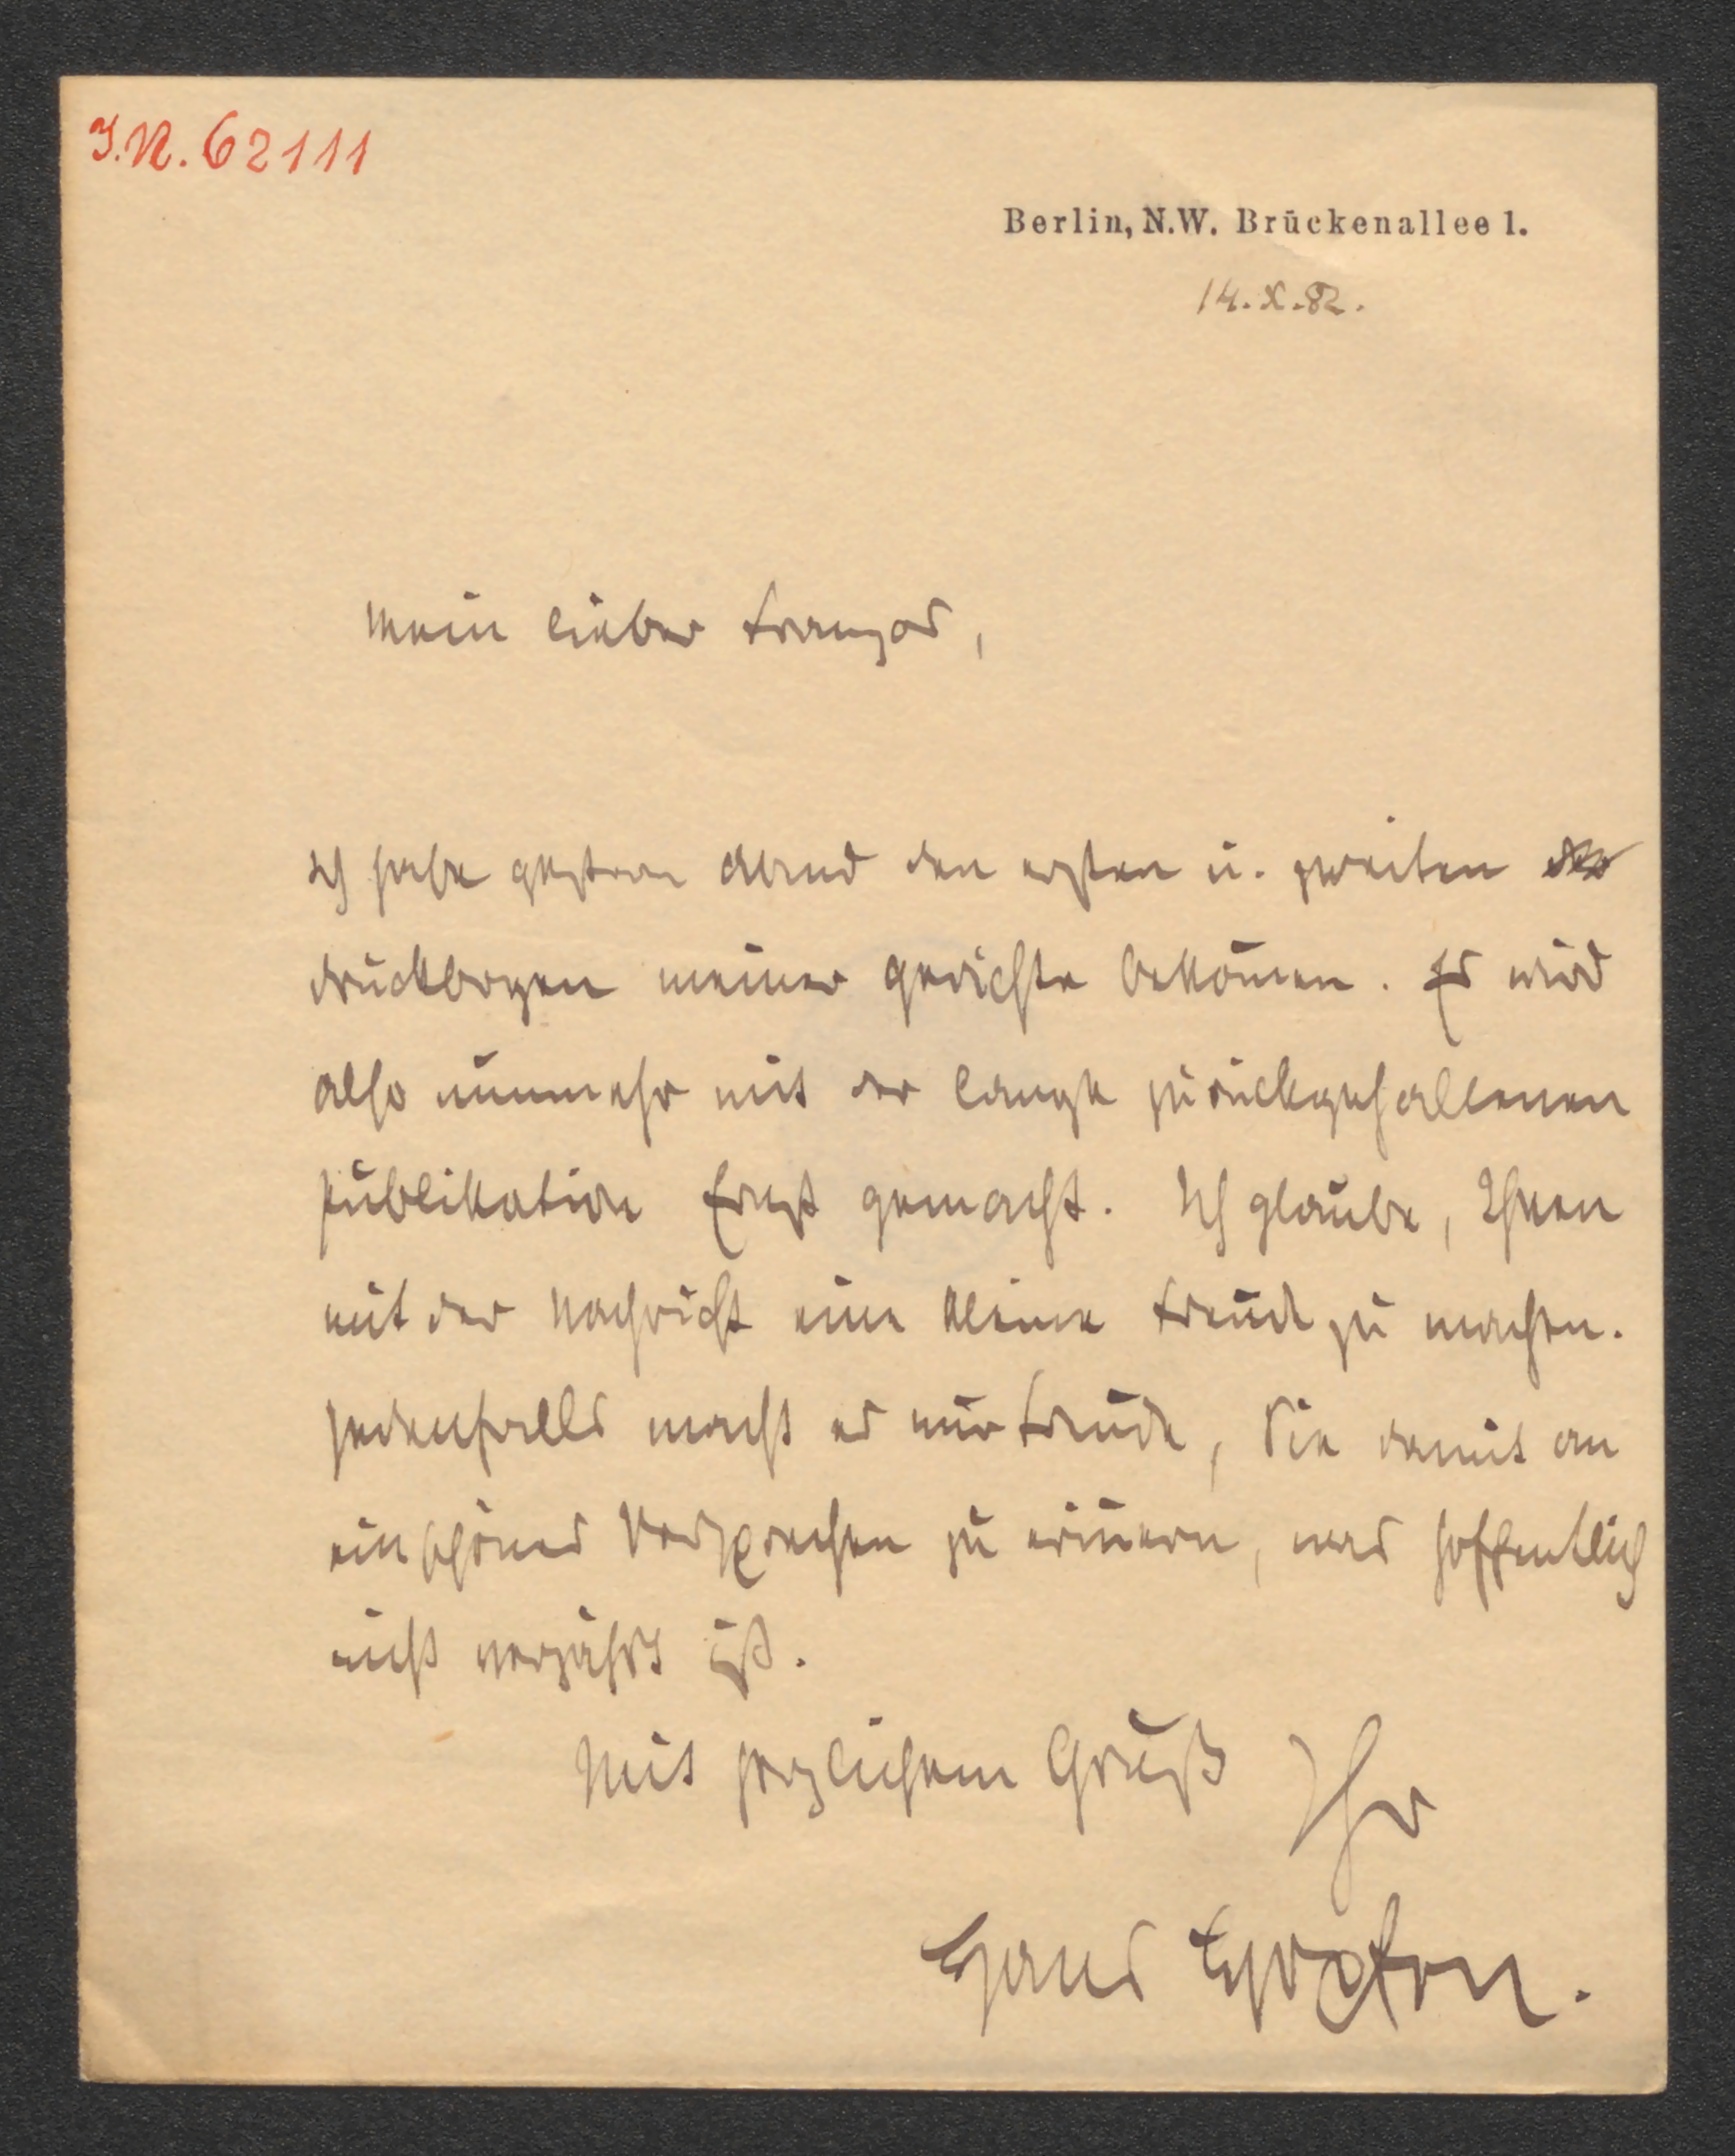 I.N. 62111
Berlin, N.W. Brückenallee 1.
14. X. 82.
Mein lieber Franzos,
Ich habe gestern Abend den ersten u. zweiten
Druckbogen meiner Gedichte bekom̄en. Es wird
also nunmehr mit der lange zurückgehaltenen
Publikation Ernst gemacht. Ich glaube, Ihnen
mit der Nachricht eine kleine Freude zu machen.
Jedenfalls macht es mir Freude, Sie damit an
ein schönes Versprechen zu erin̄ern, was hoffentlich
nicht verjährt ist.
Mit herzlichem Gruß Ihr
Hans Hopfen.